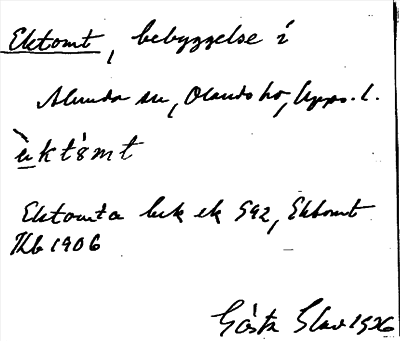 Ektomt, bebyggelse i
Alunda sn, Olands hd, Upps. l.
ὲktǒmt
Ektomta bek ek 592, Ektomt
Jb 1906
Gösta Slav 1936